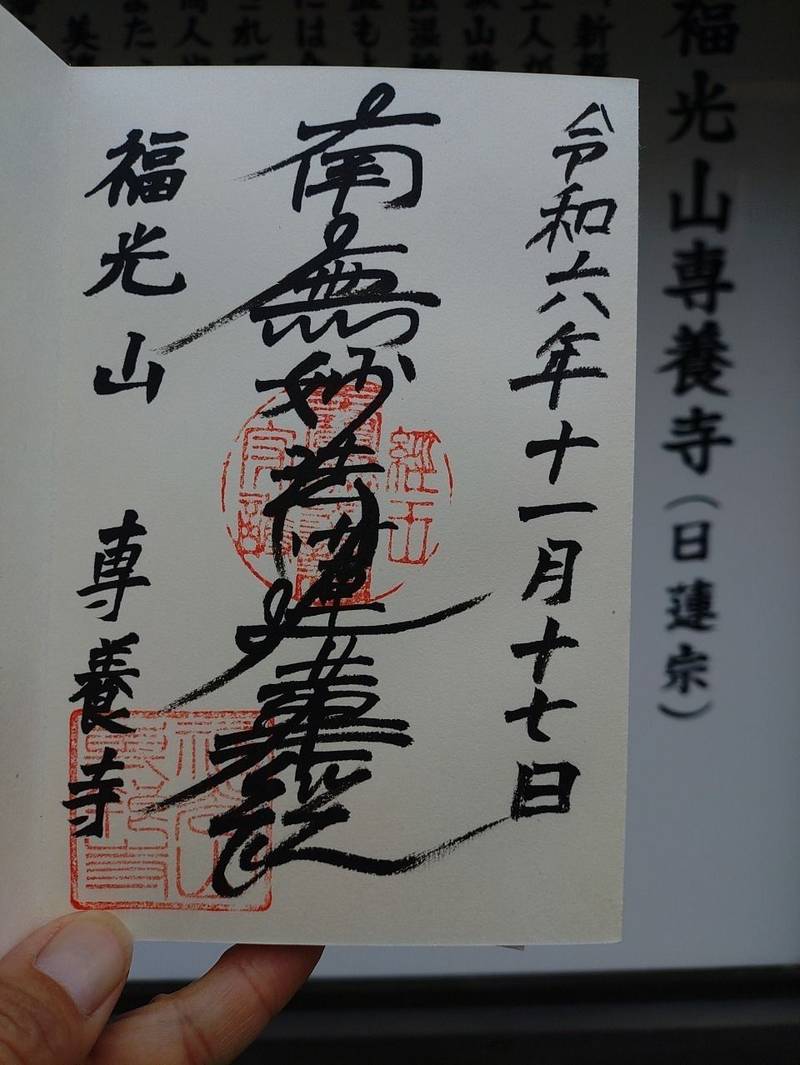 福光山専養寺(日蓮宗)
令和六年十一月十七日
南無妙法蓮華経
福光山 専養寺
経王